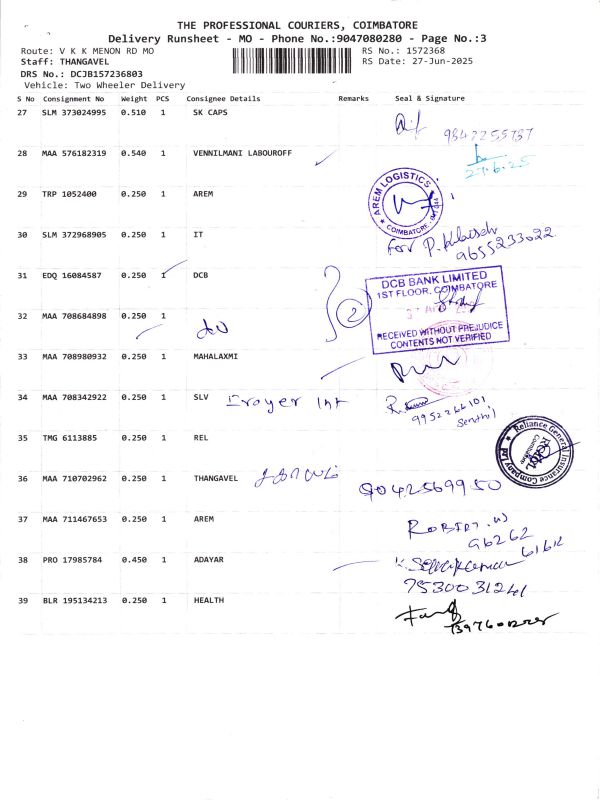 THE PROFESSIONAL COURIERS, COIMBATORE
Delivery Runsheet - MO - Phone No.:9047080280 - Page No.:3
Route: V K K MENON RD MO
RS No.: 1572368
Staff: THANGAVEL
RS Date: 27-Jun-2025
DRS No.: DCJB157236803
Vehicle: Two Wheeler Delivery
S No Consignment No Weight PCS Consignee Details Remarks Seal & Signature
27 SLM 373024995 0.510 1 SK CAPS
28 MAA 576182319 0.540 1 VENNILMANI LABOUROFF
27.6.25
29 TRP 1052400 0.250 1 AREM
AREM LOGISTICS
COIMBATORE
30 SLM 372968905 0.250 1 IT
For P.
9655233022
31 EDQ 16084587 0.250 1 DCB
2
DCB BANK LIMITED
1ST FLOOR, COIMBATORE
RECEIVED WITHOUT PREJUDICE
CONTENTS NOT VERIFIED
32 MAA 708684898 0.250 1
33 MAA 708980932 0.250 1 MAHALAXMI
34 MAA 708342922 0.250 1 SLV
9952266101
Senthil
35 TMG 6113885 0.250 1 REL
Reliance General Insurance Company
36 MAA 710702962 0.250 1 THANGAVEL
9042569950
37 MAA 711467653 0.250 1 AREM
ROBIRT. W
96262
61612
38 PRO 17985784 0.450 1 ADAYAR
7530031241
39 BLR 195134213 0.250 1 HEALTH